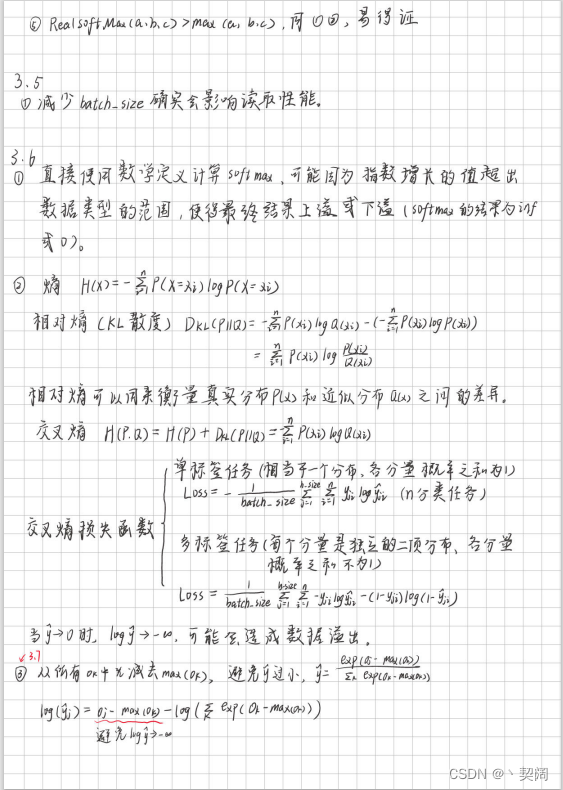 ⑤ RealSoftMax(a,b,c)>max(a,b,c), 同①②, 易得证
3.5
① 减少batch_size确实会影响读取性能。
3.6
① 直接使用数学定义计算softmax, 可能因为指数增长的值超出
数据类型的范围, 使得最终结果上溢或下溢(softmax的结果为inf
或0)。
② 熵 H(X)=-∑ⁿᵢ₌₁P(X=xi)logP(X=xi)
相对熵(KL散度) DKL(P||Q)=-∑ⁿᵢ₌₁P(xi)logQ(xi)-(-∑ⁿᵢ₌₁P(xi)logP(xi))
=∑ⁿᵢ₌₁P(xi)log P(xi)/Q(xi)
相对熵可以用来衡量真实分布P(x)和近似分布Q(x)之间的差异。
交叉熵 H(P,Q)=H(P)+DKL(P||Q)=-∑ⁿᵢ₌₁P(xi)logQ(xi)
交叉熵损失函数
单标签任务(相当于一个分布、各分量概率之和为1)
Loss=-1/batch_size ∑ᵇ⁻ˢⁱᶻᵉⱼ₌₁∑ⁿᵢ₌₁ yji logŷji (n分类任务)
多标签任务(每个分量是独立的二项分布、各分量
概率之和不为1)
Loss=1/batch_size ∑ᵇ⁻ˢⁱᶻᵉⱼ₌₁∑ⁿᵢ₌₁-yji logŷji-(1-yji)log(1-ŷji)
当ŷ→0时, logŷ→-∞, 可能会造成数据溢出。
↙3.7
③ 从所有ok中先减去max(ok), 避免ŷ过小, ŷ=exp(oj-max(ok))/∑k exp(ok-max(ok))
log(ŷj)=oj-max(ok)-log(∑k exp(ok-max(ok)))
避免logŷ→-∞
CSDN @丶契阔